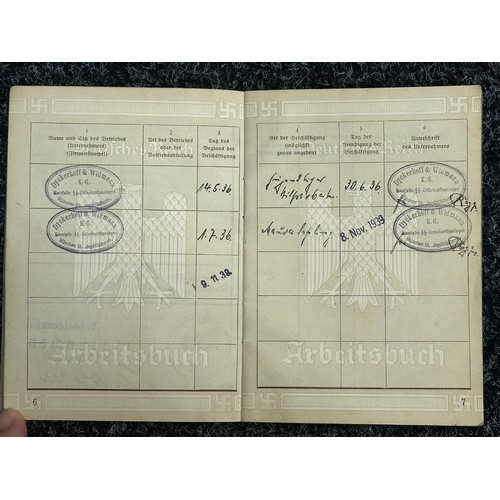 1
Name und Sitz des Betriebes
(Unternehmers)
(Firmenstempel)
2
Art des Betriebes
oder der
Betriebsabteilung
3
Tag des
Beginns der
Beschäftigung
Dyckerhoff & Widmann
K. G.
14.5.36
Dyckerhoff & Widmann
K.G.
1.7.36.
9. 11 39.
Arbeitsbuch
6
4
Art der Beschäftigung
(möglichst
genau angeben)
5
Tag der
Beendigung der
Beschäftigung
6
Unterschrift
des Unternehmers
Jugendlicher
Hilfsarbeiter
30.6.36
Dyckerhoff & Widmann
K. G.
Maurerlehrling
8. Nov. 1939
Dyckerhoff & Widmann
K. G.
Arbeitsbuch
7